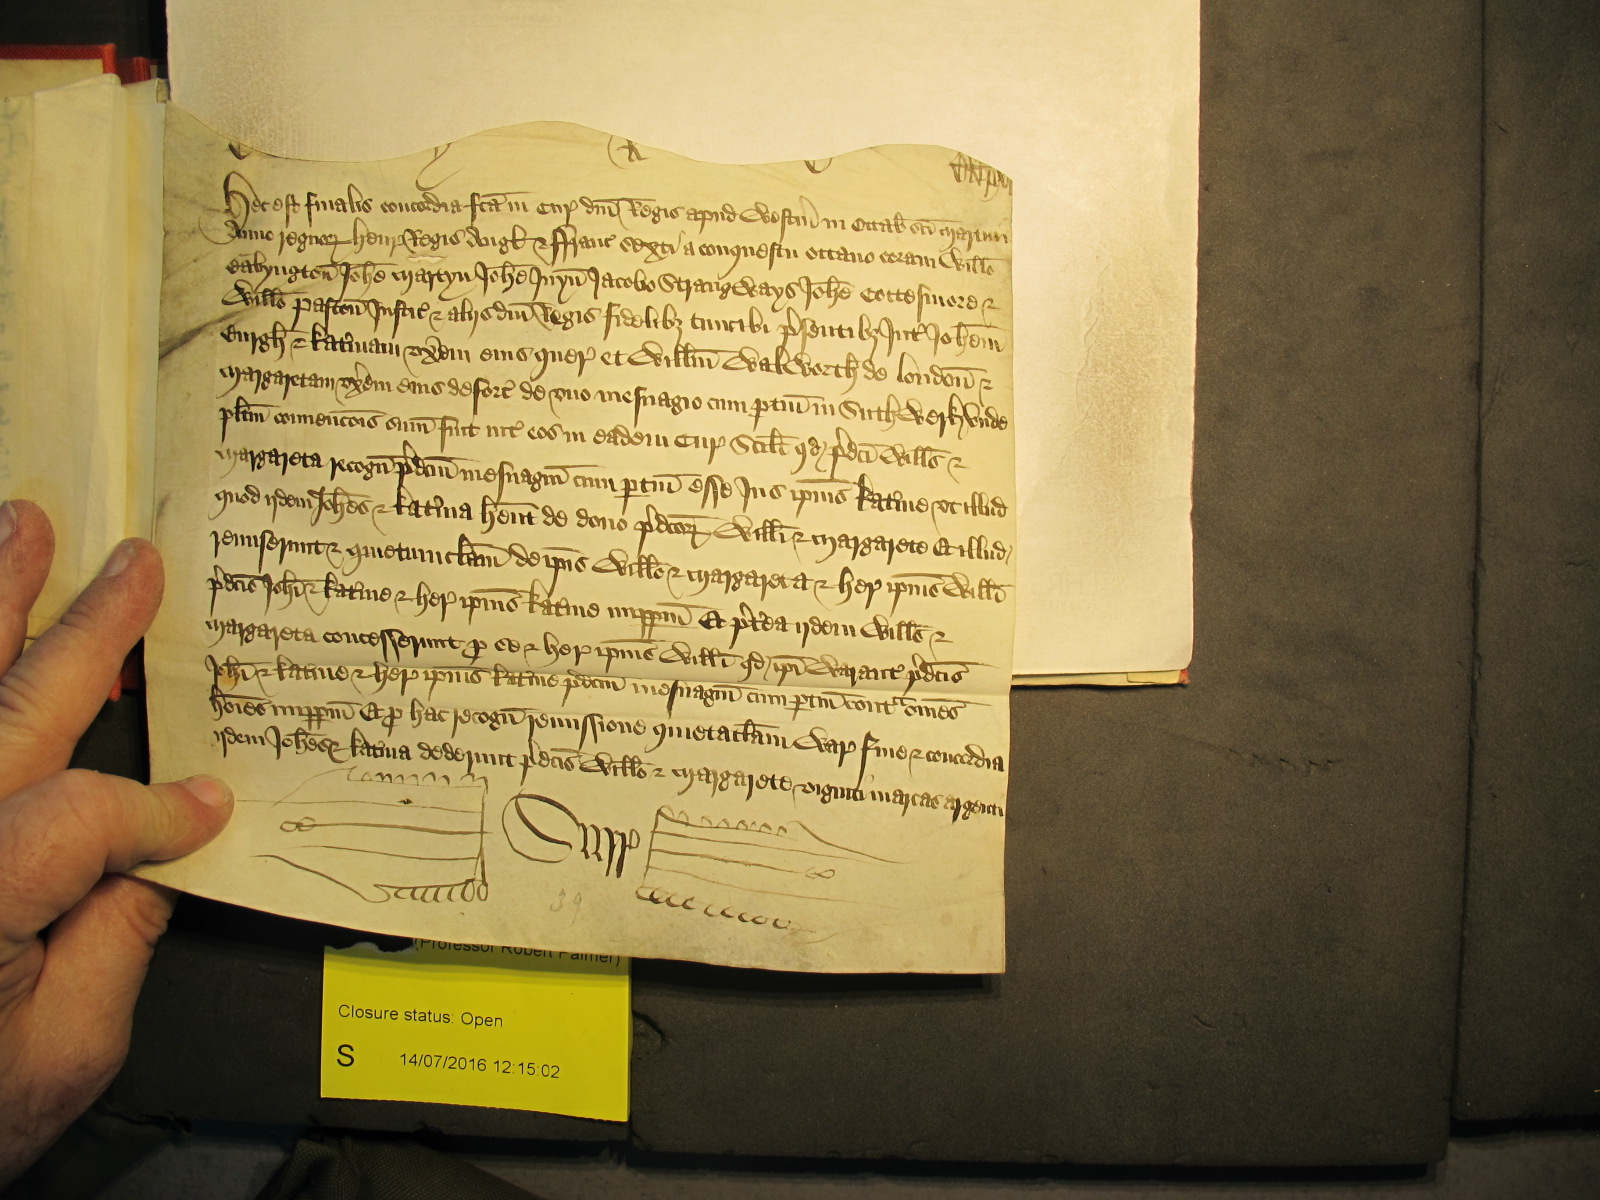 Hec est finalis concordia fca in Cur dni Regis apud Westm in Octab sci Martini
Anno regnor Henr Regis Angl & Ffranc sexti a conquestu octavo coram Willo
Babyngton Johe Martyn Johe Juyn Jacobo Strangways Johe Cottesmore &
Willo Paston Justic & aliis dni Regis fidelibz tunc ibi psentibz Int Johem
Burgh & Katinam uxem eius quer et Willm Walworth de London &
Margaretam uxem eius deforc de uno mesuagio cum ptin in Suthwerk Unde
plitm convencois sum fuit int eos in eadem Cur Scilt qd pdci Wills &
Margareta recogn pdcm mesuagm cum ptin esse Jus ipius Katine ut illud
quod iidem Johes & Katina hent de dono pdcor Willi & Margarete Et illud
remiserunt & quietumclam de ipis Willo & Margareta & her ipius Willi
pdcis Johi & Katine & her ipius Katine imppm Et pterea iidem Wills &
Margareta concesserunt p se & her ipius Willi qd ipi Warant pdcis
Johi & Katine & her ipius Katine pdcm mesuagm cum ptin cont omes
hoies imppm Et p hac recogn remissione quietaclam War fine & concordia
iidem Johes & Katina dederunt pdcis Willo & Margarete viginti marcas argenti
Surr
39
(Professor Robert Palmer)
Closure status: Open
S 14/07/2016 12:15:02